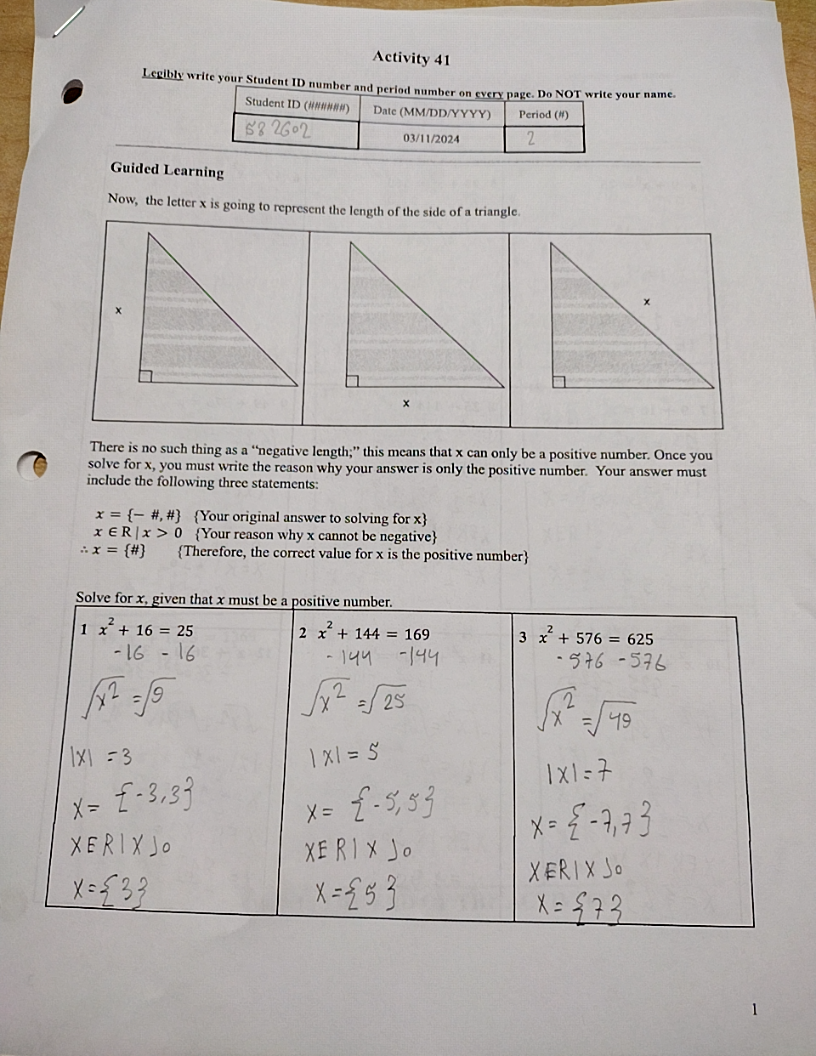 Activity 41
Legibly write your Student ID number and period number on every page. Do NOT write your name.
Student ID (######) Date (MM/DD/YYYY) Period (#)
582602 03/11/2024 2
Guided Learning
Now, the letter x is going to represent the length of the side of a triangle.
x
x
x
There is no such thing as a “negative length;” this means that x can only be a positive number. Once you
solve for x, you must write the reason why your answer is only the positive number. Your answer must
include the following three statements:
x = {− #, #} {Your original answer to solving for x}
x ∈ R | x > 0 {Your reason why x cannot be negative}
∴ x = {#} {Therefore, the correct value for x is the positive number}
Solve for x, given that x must be a positive number.
1 x² + 16 = 25
-16 -16
√x² = √9
|x| = 3
x = {-3,3}
XER|X>0
x = {3}
2 x² + 144 = 169
-144 -144
√x² = √25
|x| = 5
x = {-5,5}
XER|X>0
x = {5}
3 x² + 576 = 625
-576 -576
√x² = √49
|x| = 7
x = {-7,7}
XER|X>0
x = {7}
1